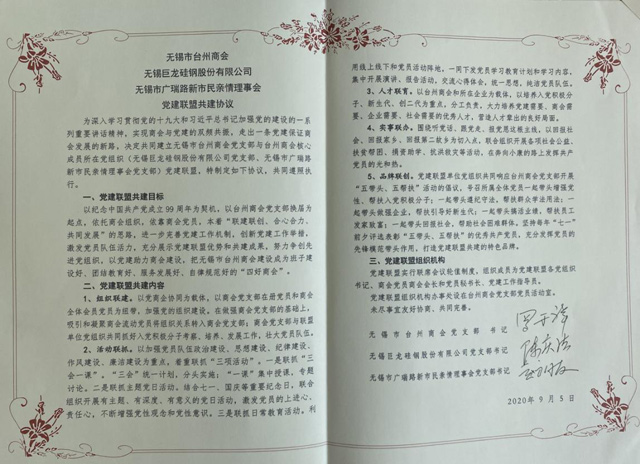 无锡市台州商会
无锡巨龙硅钢股份有限公司
无锡市广瑞路新市民亲情理事会
党建联盟共建协议
为深入学习贯彻党的十九大和近平总书记加强党的建设的一系
列重要讲话精神，实现商会与党建的双频共振，走出一条党建保证商
会发展的新路，决定共同建立无锡市台州商会党支部与台州商会核心
成员所在党组织（无锡巨龙硅钢股份有限公司党支部、无锡市广瑞路
新市民亲情理事会党支部）党建联盟，特制定如下协议，共同遵照执
行。
一、党建联盟共建目标
以纪念中国共产党成立99周年为契机，以台州商会党支部换届为
起点，依托商会组织，依靠商会党员，本着“联建联创、合心合力、
共同发展”的思路，进一步完善党建工作机制，创新党建工作举措，
激发党员队伍活力，充分展示党建联盟优势和共建成果，努力争创先
进党组织，以党建助力商会建设，把无锡市台州商会建设成为班子建
设好、团结教育好、服务发展好、自律规范好的“四好商会”。
二、党建联盟共建内容
1、组织联建。以党商会协同为载体，以商会党支部在册党员和商会
全体会员党员为纽带，加强党的组织建设。在做强商会党支部的基础上，
吸引和凝聚商会流动党员将组织关系转入商会党支部；商会党支部与联盟
单位党组织共同抓好入党积极分子考察、培养、发展工作，壮大党员队伍。
2、活动联抓。以加强党员队伍政治建设、思想建设、纪律建设、
作风建设、廉洁建设为重点，着重联抓“三项活动”。一是联抓“三
会一课”，“三会”统一计划，分头实施；“一课”集中授课，专题
讨论。二是联抓主题党日活动。结合七一、国庆等重要纪念日，联合
组织开展有主题、有深度、有意义的党日活动，激发党员的上进心、
责任心，不断增强党性观念和党性意识。三是联抓日常教育活动。利
用线上线下和党员活动阵地，一同下发党员学习教育计划和学习内容，
集中开展演讲、报告活动，交流心得体会，统一思想，纯洁党员队伍。
3、人才联育。以台州商会和所在企业为载体，以培养入党积极分
子、新生代、创二代为重点，分工负责，大力培养党建需要、商会需
要、企业需要、社会需要的优秀人才，营造人才辈出的良好局面。
4、实事联办。围绕听党话、跟党走、报党恩这根主线，以回报社
会、回报家乡、回报第二故乡为切入点，联合组织开展各项社会公益、
扶贫帮困、捐资助学、抗洪救灾等活动，在奔向小康的路上发挥共产
党员的光和热。
5、品牌联创。党建联盟单位党组织共同响应台州商会党支部开展
“五带头、五帮扶”活动的倡议，号召所属全体党员一起带头增强党
性，帮扶入党积极分子；一起带头遵纪守法，帮扶群众学法用法；一
起带头做强企业，帮扶引导好新生代；一起带头搞活企绩，帮扶员工
发家致富；一起带头回报社会，帮助社会困难群体，坚持每年“七一”
前夕评选表彰“五带头、五帮扶”的优秀共产党员，充分发挥党员的
先锋模范带头作用，打造党建联盟共建的特色品牌。
三、党建联盟组织机构
党建联盟实行联席会议轮值制度，组织成员为党建联盟各党组织
书记、商会党员商会会长和党员秘书长、党建工作指导员。
党建联盟组织机构办事处设在台州商会党支部党员活动室。
未尽事宜友好协商，共同完善。
无锡市台州商会党支部书记
无锡巨龙硅钢股份有限公司党支部书记
无锡市广瑞路新市民亲情理事会党支部书记
2020年9月5日